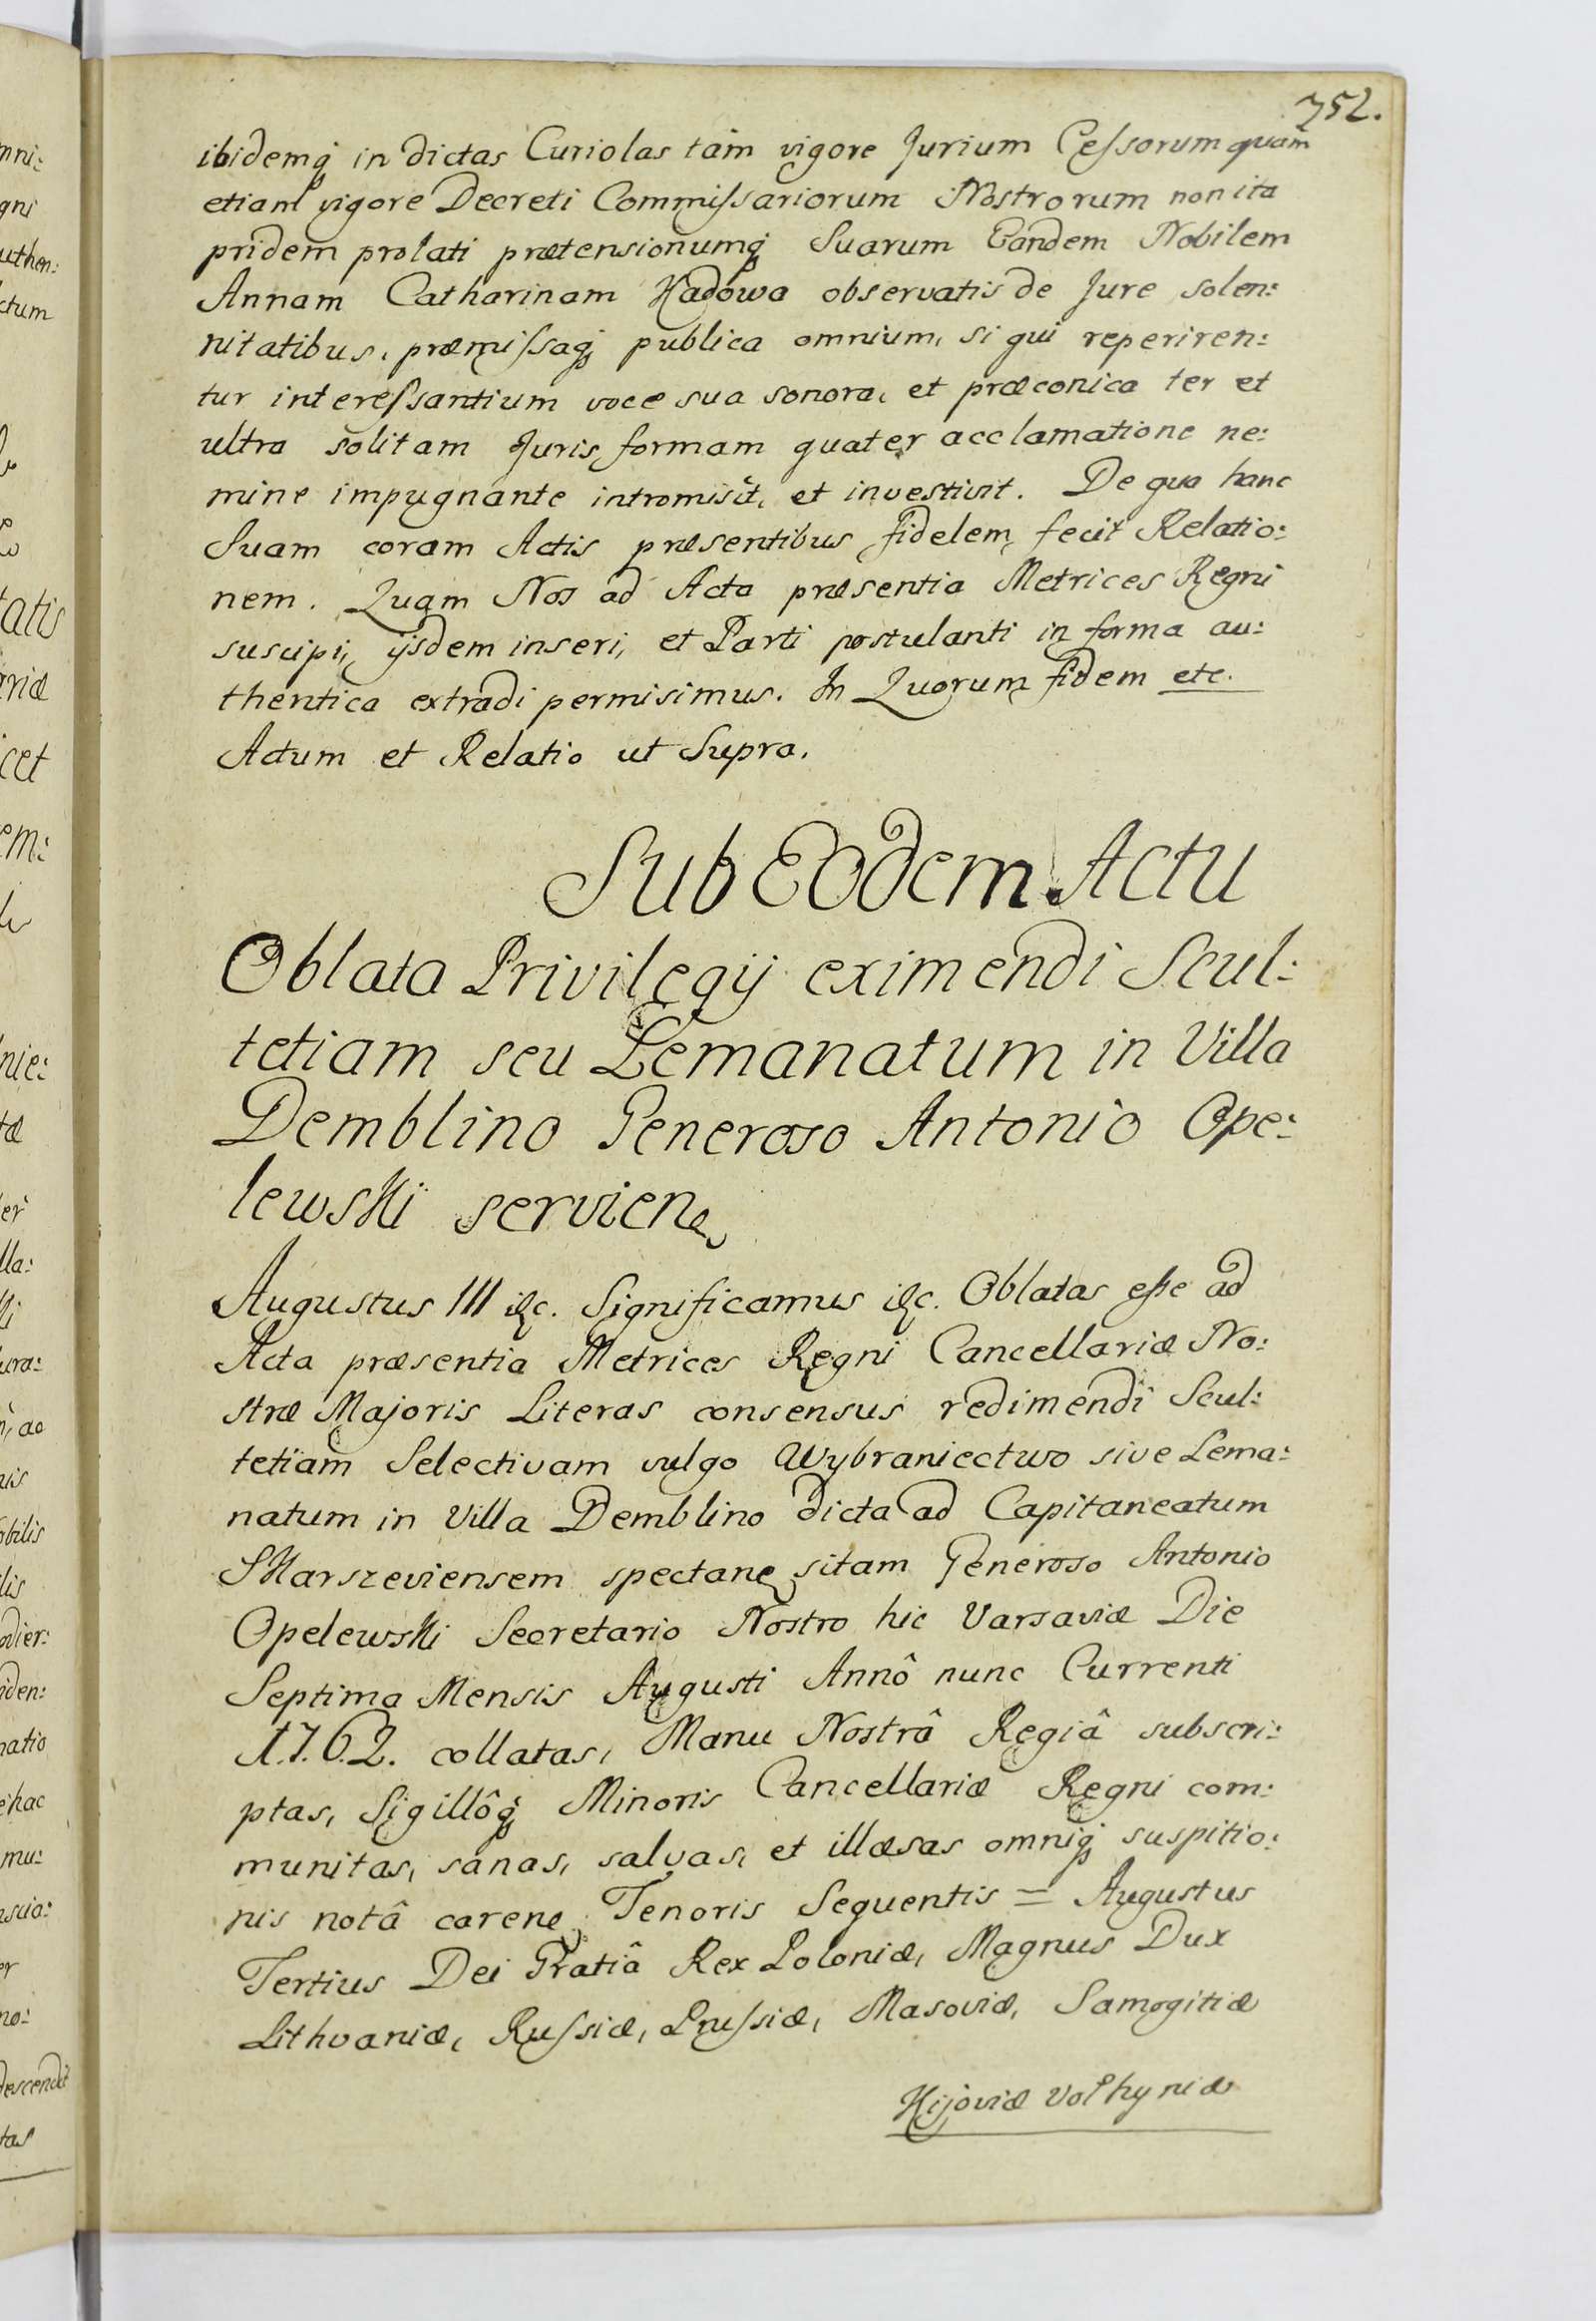 752.
ibidemq́ in dictas Curiolas tàm vigore Jurium Ceſsorum quàm
etiam vigore Decreti Commiſsariorum Nostrorum non ita
pridem prolati prætensionumq́ Suarum Eandem Nobilem
Annam Catharinam Kadowa observatis de Jure solen:
nitatibus, præmiſsaq́ publica omnium, si qui reperiren:
tur intereſsantium voce sua sonora, et præconica ter et
ultra solitam Juris formam quater acclamatione ne:
mine impugnante intromisit, et investivit. De quo hanc
Suam coram Actis præsentibus fidelem fecit Relatio:
nem. Quam Nos ad Acta præsentia Metrices Regni
suscipi, ijsdem inseri, et Parti postulanti in forma au:
thentica extradi permisimus. In Quorum fidem etc.
Actum et Relatio ut Supra.
Sub Eodem Actu
Oblata Privilegij eximendi Scul:
tetiam seu Lemanatum in Villa
Demblino Generoso Antonio Ope:
lewski servien
Augustus III &c. Significamus &c. Oblatas eſse ad
Acta præsentia Metrices Regni Cancellariæ No:
stræ Majoris Literas consensus redimendi Scul:
tetiam Selectivam vulgo Wybraniectwo sive Lema:
natum in Villa Demblino dicta ad Capitaneatum
Skarszeviensem spectan sitam Generoso Antonio
Opelewski Secretario Nostro hic Varsaviæ Die
Septima Mensis Augusti Annô nunc Currenti
1.7.6.2. collatas, Manu Nostrâ Regiâ subscri:
ptas, Sigillôq́ Minoris Cancellariæ Regni com:
munitas, sanas, salvas, et illæsas omniq́ suspitio:
nis notâ caren Tenoris Sequentis = Augustus
Tertius Dei Gratiâ Rex Poloniæ, Magnus Dux
Lithvaniæ, Ruſsiæ, Pruſsiæ, Masoviæ, Samogitiæ
Kijoviæ Volhyniæ